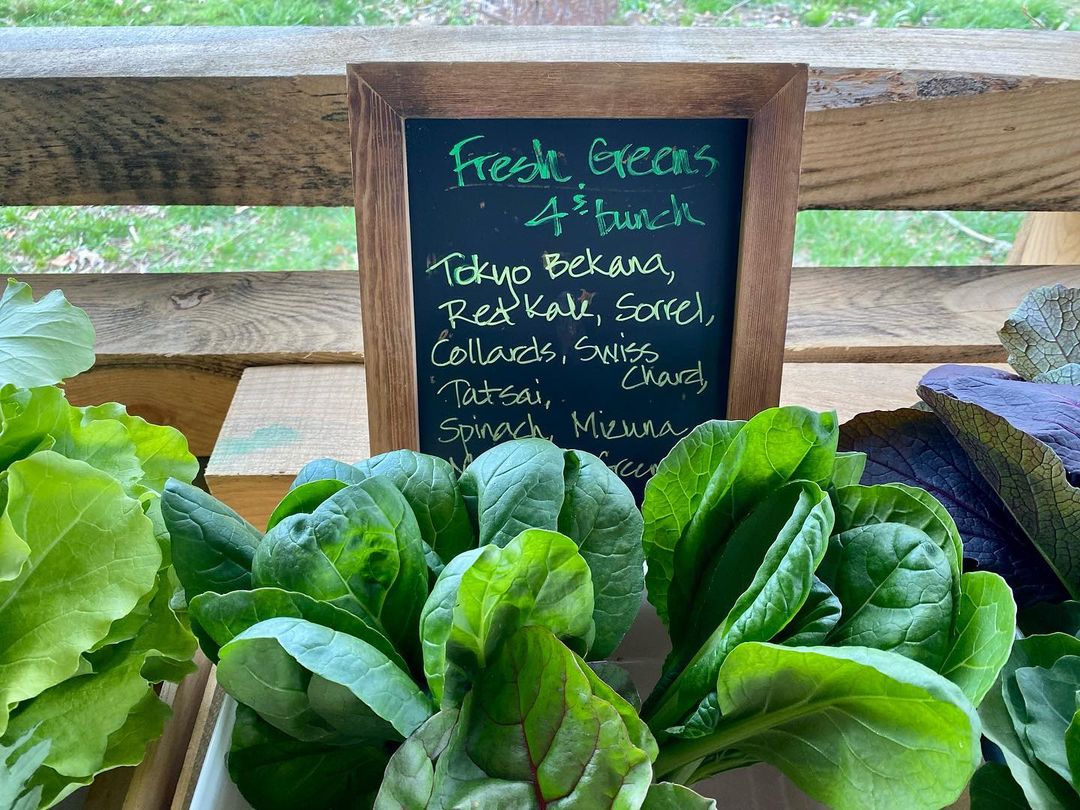 Fresh Greens
4$ bunch
Tokyo Bekana,
Red Kale, Sorrel,
Collards, Swiss
Chard,
Tatsai,
Spinach, Mizuna
Green